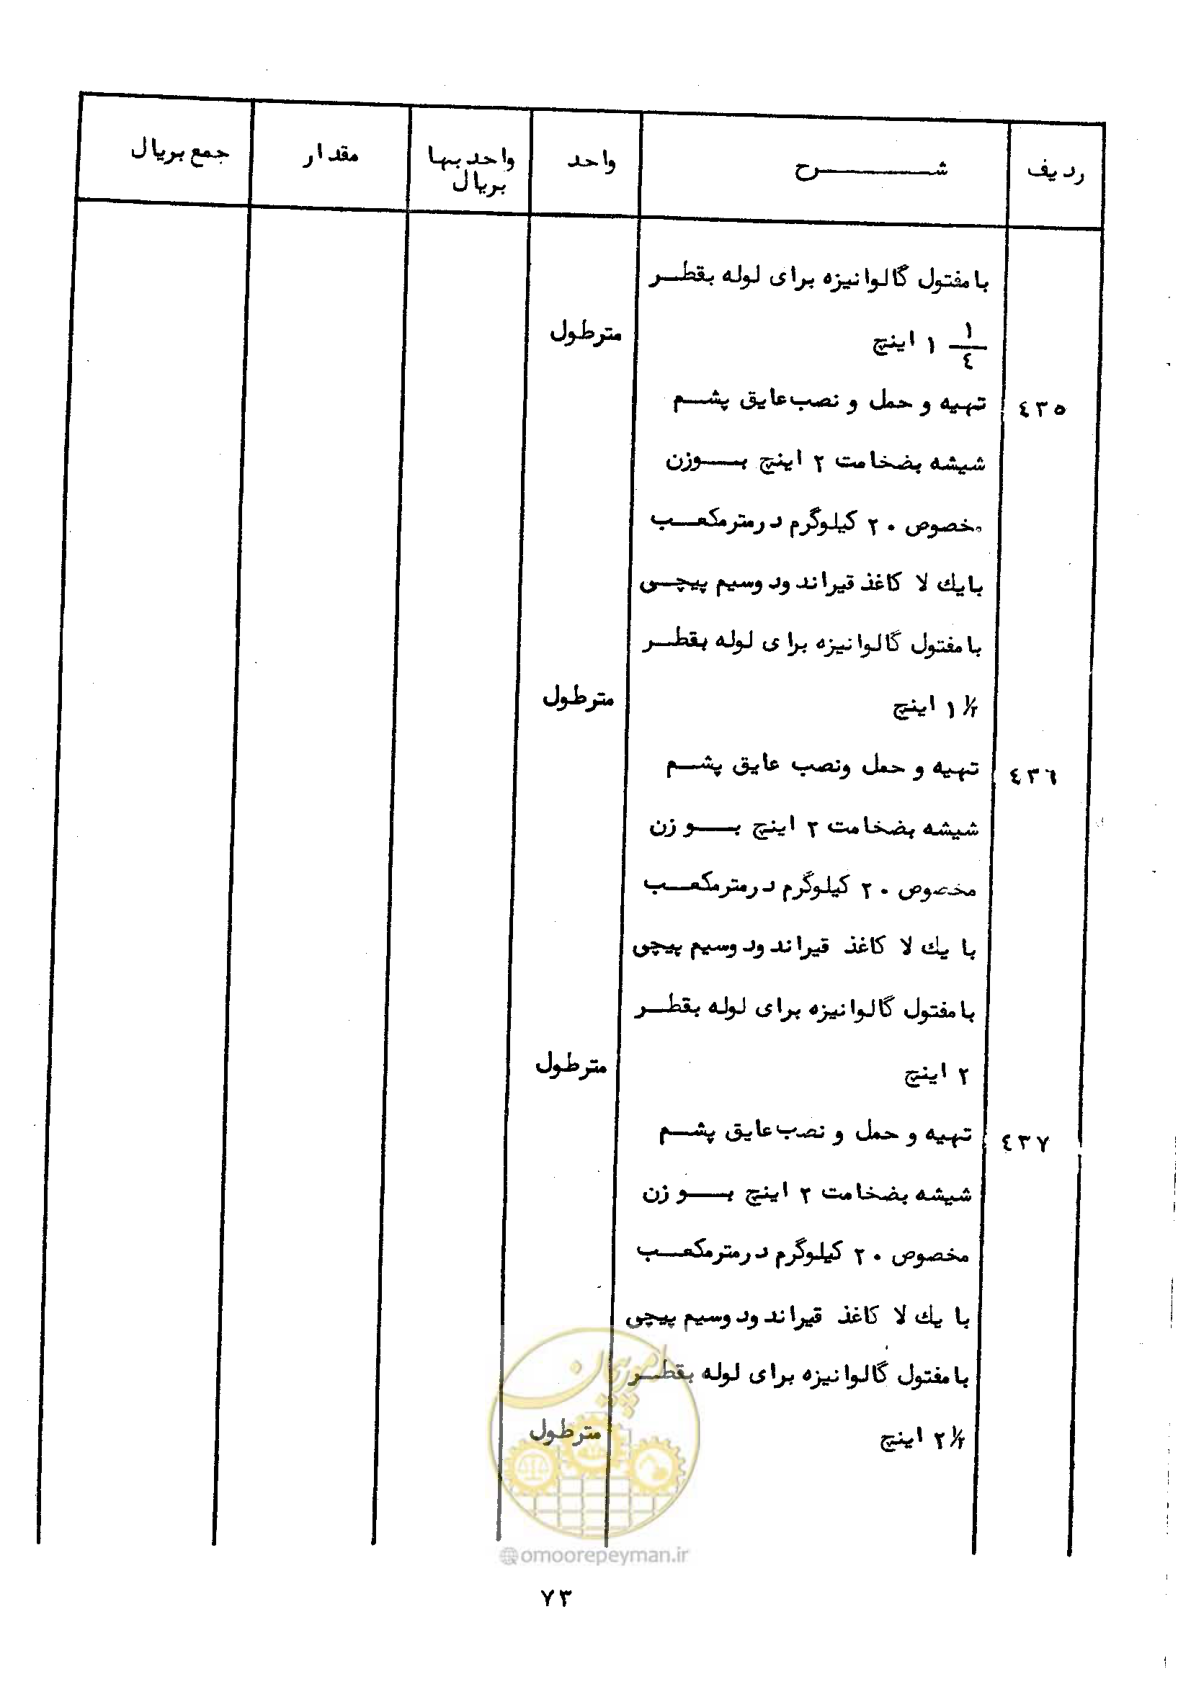 ردیف شرح واحد واحد بها مقدار جمع بریال
بریال
با مفتول گالوانیزه برای لوله بقطر
۱ ۱/٤ اینچ مترطول
٤۳٥ تهیه و حمل و نصب عایق پشم
شیشه بضخامت ۲ اینچ بوزن
مخصوص ۲۰ کیلوگرم درمترمکعب
بایك لا کاغذ قیراندود وسیم پیچی
با مفتول گالوانیزه برای لوله بقطر
۱ ۱/۲ اینچ مترطول
٤۳٦ تهیه و حمل ونصب عایق پشم
شیشه بضخامت ۲ اینچ بوزن
مخصوص ۲۰ کیلوگرم درمترمکعب
با یك لا کاغذ قیراندود وسیم پیچی
با مفتول گالوانیزه برای لوله بقطر
۲ اینچ مترطول
٤۳۷ تهیه و حمل و نصب عایق پشم
شیشه بضخامت ۲ اینچ بوزن
مخصوص ۲۰ کیلوگرم درمترمکعب
با یك لا کاغذ قیراندود وسیم پیچی
با مفتول گالوانیزه برای لوله بقطر
۲ ۱/۲ اینچ مترطول
امور پیمان
@omoorepeyman.ir
۷۳